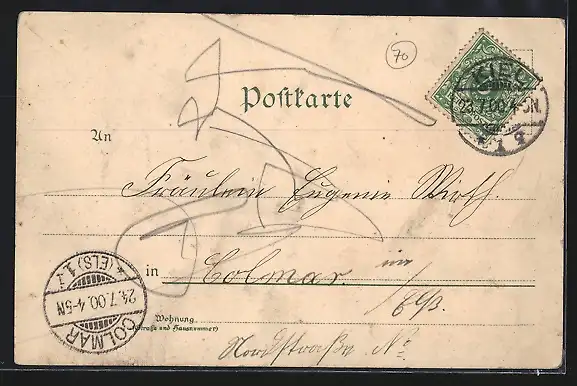 70
KIEL
23.7.00.4-5N.
* 1 q
Postkarte
An
Fräulein Eugenie Wirth.
in Colmar im
/Els.
COLMAR
24.7.00.4-5N
* (ELS) 1. *
Wohnung
(Straße und Hausnummer)
Nordstraße No